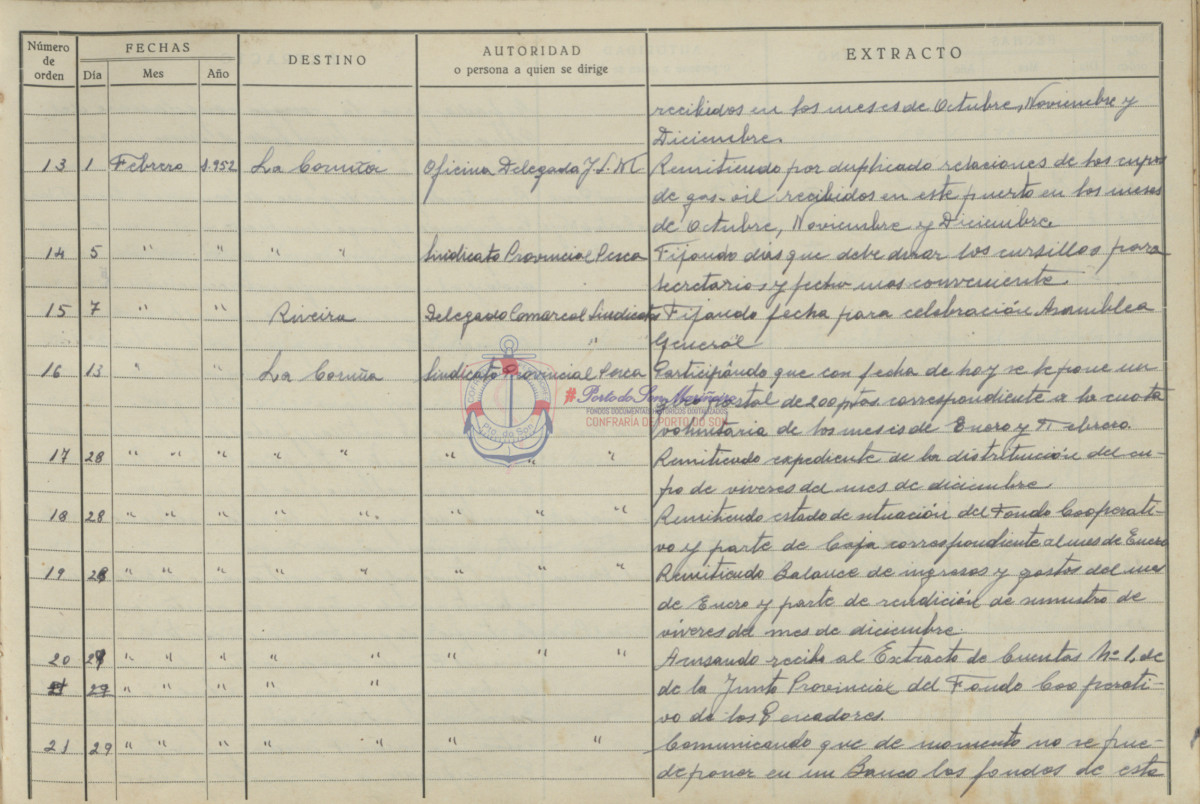 Número de orden FECHAS DESTINO AUTORIDAD o persona a quien se dirige EXTRACTO
Día Mes Año
recibidos en los meses de Octubre, Noviembre y
Diciembre.
13 1 Febrero 1.952 La Coruña Oficina Delegada J.S.M. Remitiendo por duplicado relaciones de los cupos
de gas-oil recibidos en este puerto en los meses
de Octubre, Noviembre y Diciembre.
14 5 " " " " Sindicato Provincial Pesca Fijando dias que debe durar los cursillos para
secretarios y fecha mas conveniente.
15 7 " " Riveira Delegado Comarcal Sindicatos Fijando fecha para celebración Asamblea
" General
16 13 " " La Coruña Sindicato Provincial Pesca Participándo que con fecha de hoy se le pone un
giro postal de 200 ptas. correspondiente a la cuota
voluntaria de los meses de Enero y Febrero.
17 28 " " " " " " " " Remitiendo expediente de la distritución del cu-
po de viveres del mes de diciembre.
18 28 " " " " " " " Remitiendo estado de situación del Fondo Cooperati-
vo y parte de Caja correspondiente al mes de Enero
19 28 " " " " " " " Remitiendo Balance de ingresos y gastos del mes
de Enero y parte de rendición de sumustro de
viveres del mes de diciembre.
20 29 " " " " " " " " Acusando recibo al Extracto de Cuentas Nº 1, de
21 29 " " " " " de la Junta Provincial del Fondo Cooperati-
vo de los Pescadores.
21 29 " " " " " " " Comunicando que de momento no se pue-
de poner en un Banco los fondos de esta
#Porto do Son Mariñeiro
FONDOS DOCUMENTAIS HISTÓRICOS DIXITALIZADOS
CONFRARÍA DE PORTO DO SON
Pto. do Son